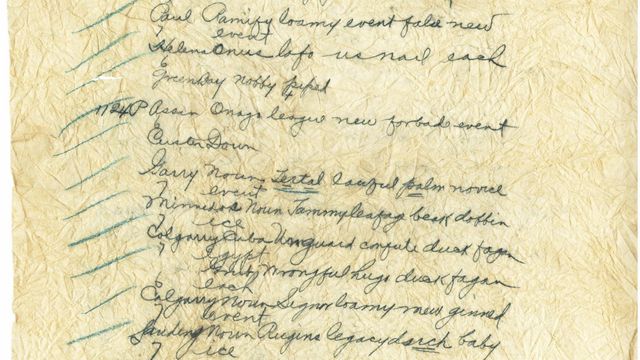 Paul Ramify loamy event false new
event
Helena Onus lofo usnail each
Greenbay nobby piped
1124P Assin Onago league new forbade event
Custer Down
Garry Noun Tertal lawful palm novice
event
Minnedos Noun Jammyleafage beak dobbin
ice
Calgarry Cuba Unguard confute duck fagan
egypt
wrongful hugs duck fagan
each
Calgarry Noun Signor loamy new ginned
event
Landing Noun Rugins legacy duck baby
ice